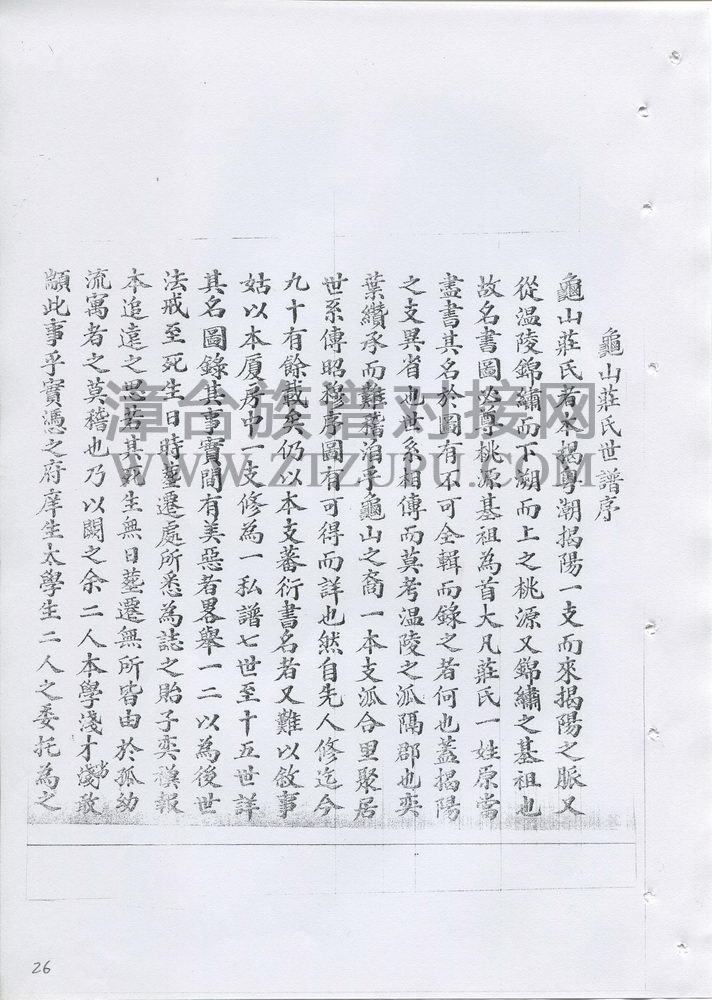 龜山莊氏世譜序
龜山莊氏者本揭粵潮揭陽一支而來揭陽之脈又
從温陵錦繡而下溯而上之桃源又錦繡之基祖也
故名書圖必尊桃源基祖為首大凡莊氏一姓原當
盡書其名於圖有不可全輯而錄之者何也蓋揭陽
之支異省也世系相傳而莫考温陵之派隔郡也奕
葉纘承而難稽洎乎龜山之裔一本支派合里聚居
世系傳昭穆序圖有可得而詳也然自先人修迄今
九十有餘載矣仍以本支蕃衍書名者又難以敘事
姑以本厦房中一支修為一私譜七世至十五世詳
其名圖錄其事實間有美惡者畧舉一二以為後世
法戒至死生日時塟遷處所悉為誌之貽子奕禩報
本追遠之思若其死生無日塟遷無所皆由於孤幼
流寓者之莫稽也乃以闕之余二人本學淺才淺敢
顓此事乎實憑之府庠生太學生二人之委托為之
漳台族谱对接网
WWW.ZTZUPU.COM
26